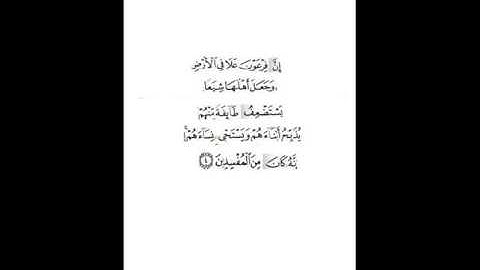 إِنَّ فِرْعَوْنَ عَلَا فِي الْأَرْضِ
وَجَعَلَ أَهْلَهَا شِيَعًا
يَسْتَضْعِفُ طَائِفَةً مِنْهُمْ
يُذَبِّحُ أَبْنَاءَهُمْ وَيَسْتَحْيِ نِسَاءَهُمْ إِ
نَّهُ كَانَ مِنَ الْمُفْسِدِينَ ٤